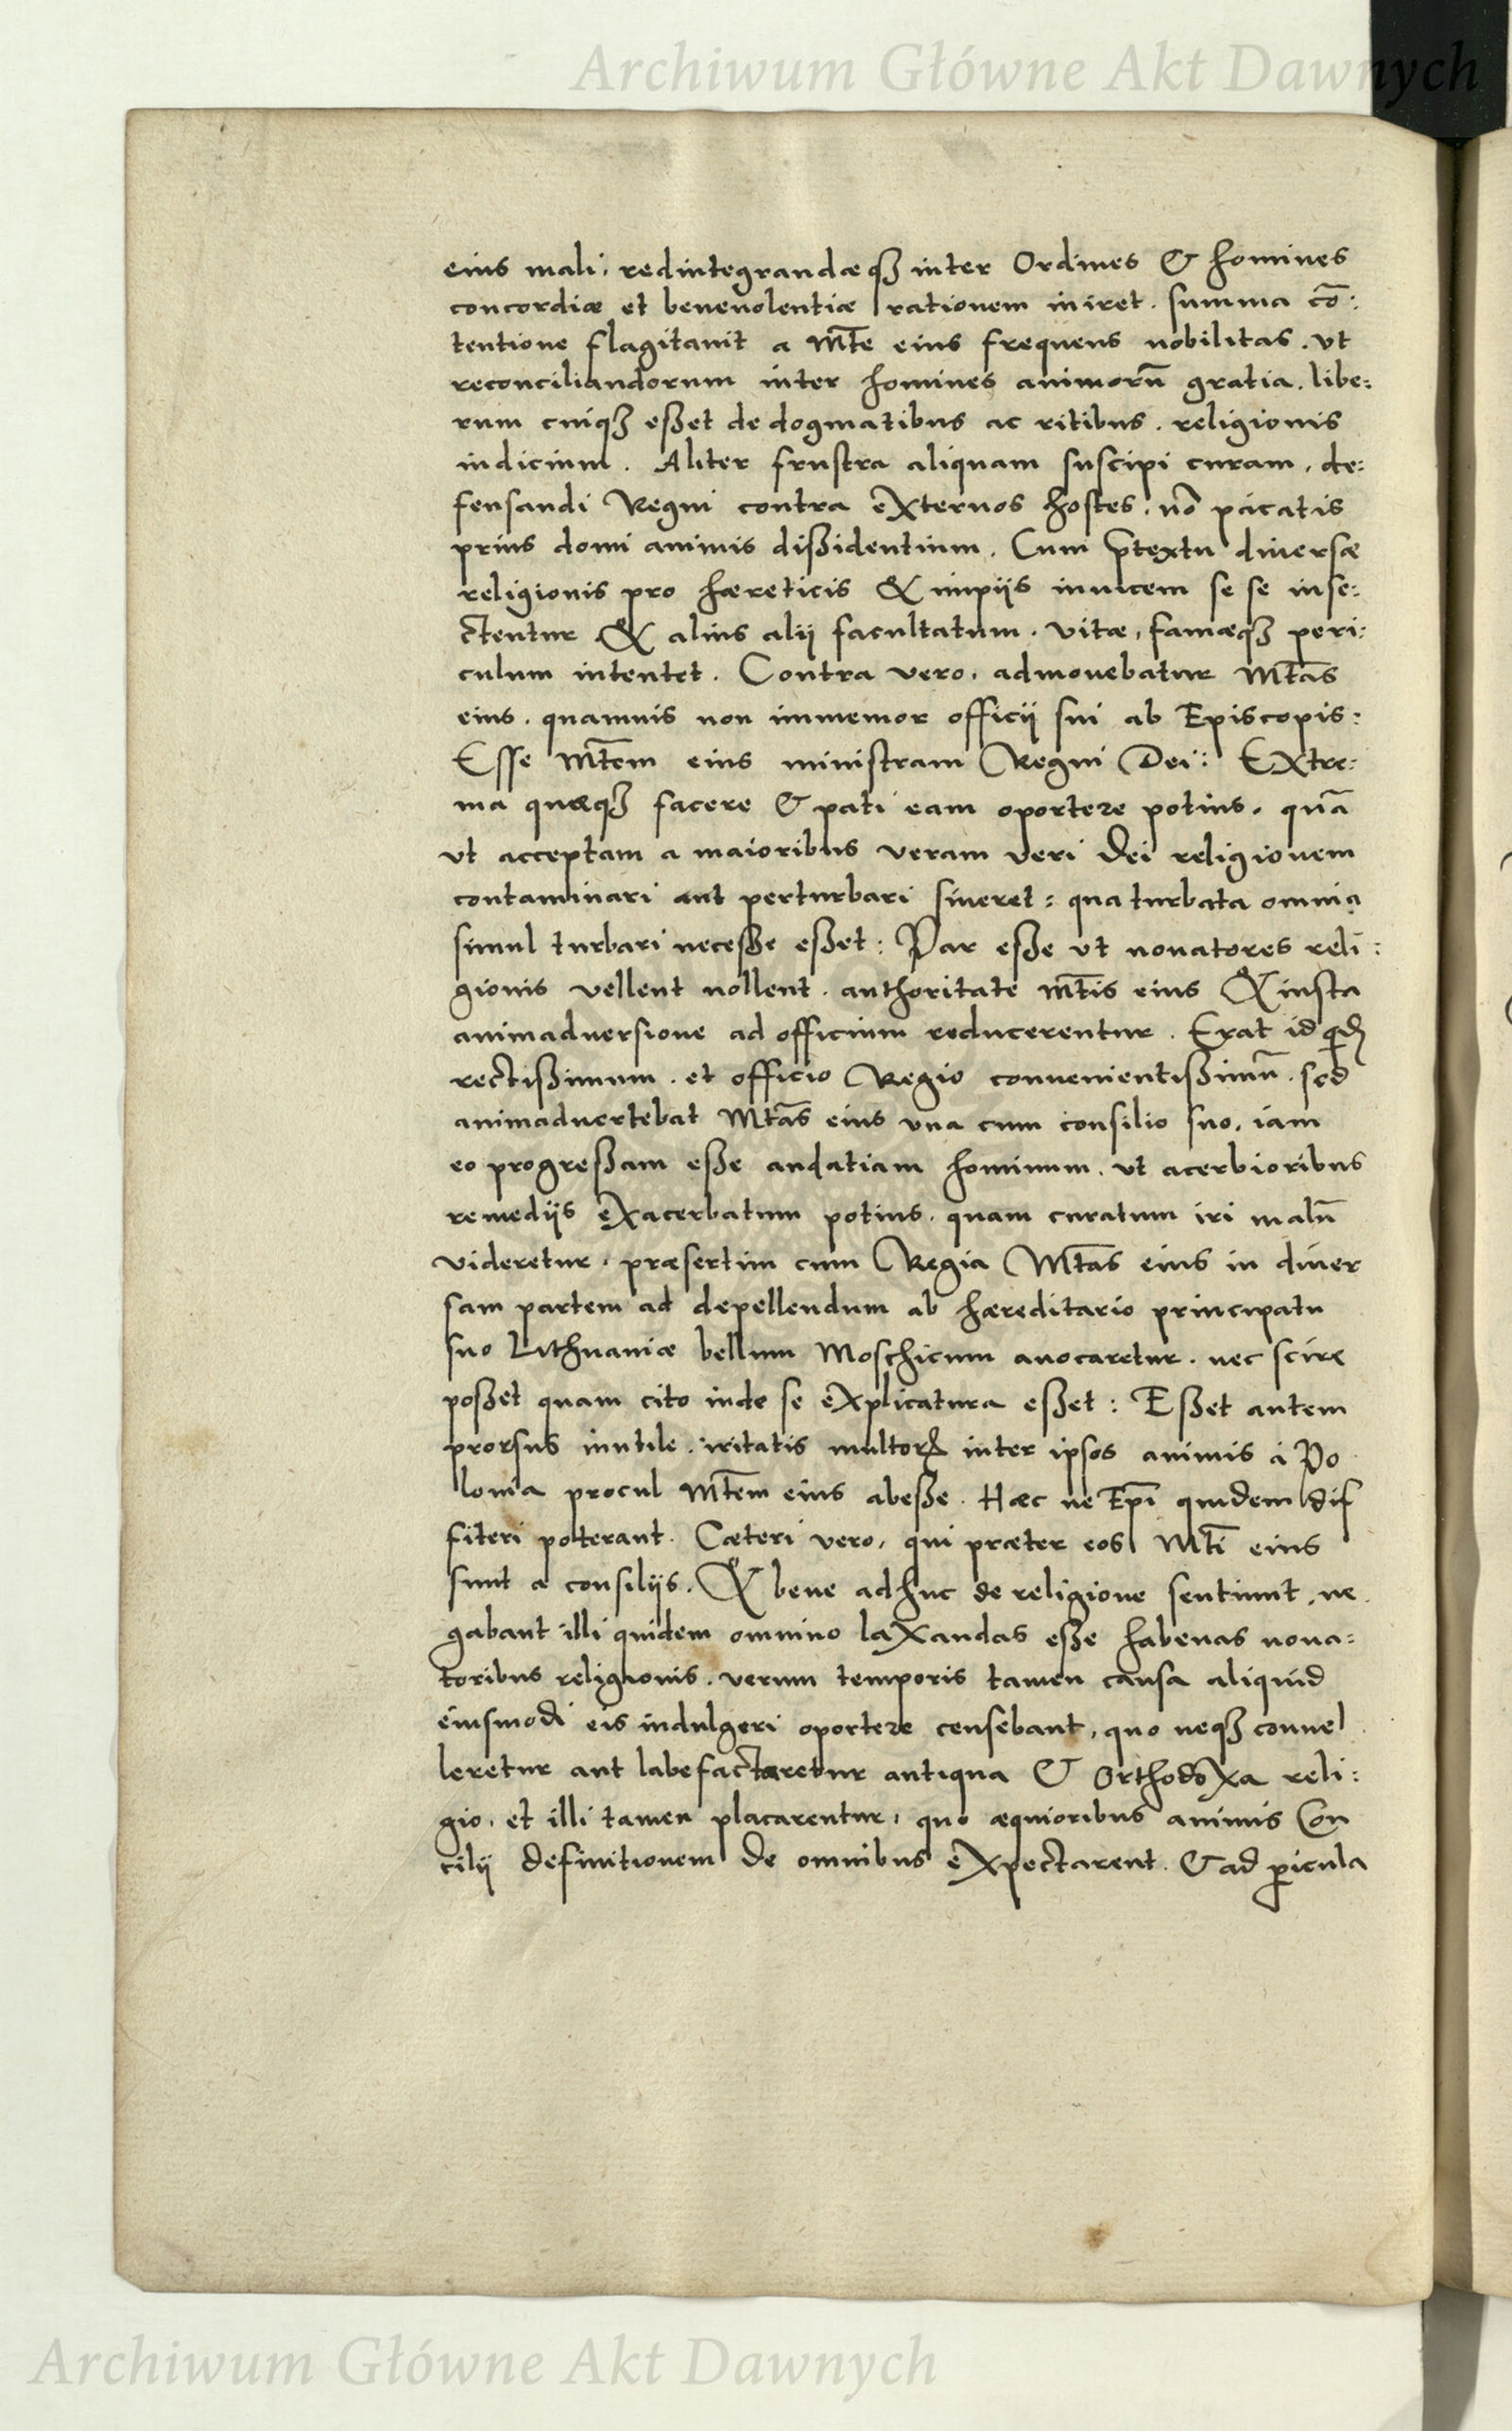 Archiwum Główne Akt Dawnych
eius mali, redintegrandæqȝ inter Ordines & homines
concordiæ et beneuolentiæ rationem iniret. summa cō:
tentione flagitauit a Mt̄e eius frequens nobilitas. vt
reconciliandorum inter homines animorū gratia. libe:
rum cuiqȝ eßet de dogmatibus ac ritibus. religionis
iudicium. Aliter frustra aliquam suscipi curam, de:
fensandi Regni contra externos hostes, nō pacatis
prius domi animis dißidentium. Cum p̄textu diuersæ
religionis pro hæreticis & impijs inuicem se se inse:
ctentur & alius alij facultatum. vitæ, famæqȝ peri:
culum intentet. Contra vero, admouebatur Mt̄as
eius. quamuis non immemor officij sui ab Episcopis:
Esse Mt̄em eius ministram Regni Dei: Extre:
ma quæqȝ facere & pati eam oportere potius, quā
vt acceptam a maioribus veram veri Dei religionem
contaminari aut perturbari sineret: qua turbata omnia
simul turbari neceße eßet: Par eße vt nouatores reli:
gionis vellent nollent. authoritate Mt̄is eius & iusta
animaduersione ad officium reducerentur. Erat id qd̄
rectißimum. et officio Regio conuenientißimū. sed
animaduertebat Mt̄as eius vna cum consilio suo, iam
eo progreßam eße audatiam hominum. vt acerbioribus
remedijs exacerbatum potius. quam curatum iri malū
videretur. præsertim cum Regia Mt̄as eius in diuer
sam partem ad depellendum ab hæreditario principatu
suo Lithuaniæ bellum Moschicum auocaretur. nec scire
poßet quam cito inde se explicatura eßet: Eßet autem
prorsus inutile. irritatis multorꝝ inter ipsos animis á Po
lonia procul Mt̄em eius abeße. Hæc ne Ep̄i quidem dif
fiteri poterant. Cæteri vero, qui præter eos Mt̄i eius
sunt a consilijs. & bene adhuc de religione sentiunt, ne
gabant illi quidem omnino laxandas eße habenas noua=
toribus religionis. verum temporis tamen causa aliquid
eiusmodi eis indulgeri oportere censebant, quo neqȝ conuel
leretur aut labefactaretur antiqua & Orthodoxa reli:
gio, et illi tamen placarentur, quo æquioribus animis Con
cilij definitionem de omnibus expectarent. & ad ꝑicula
Archiwum Główne Akt Dawnych